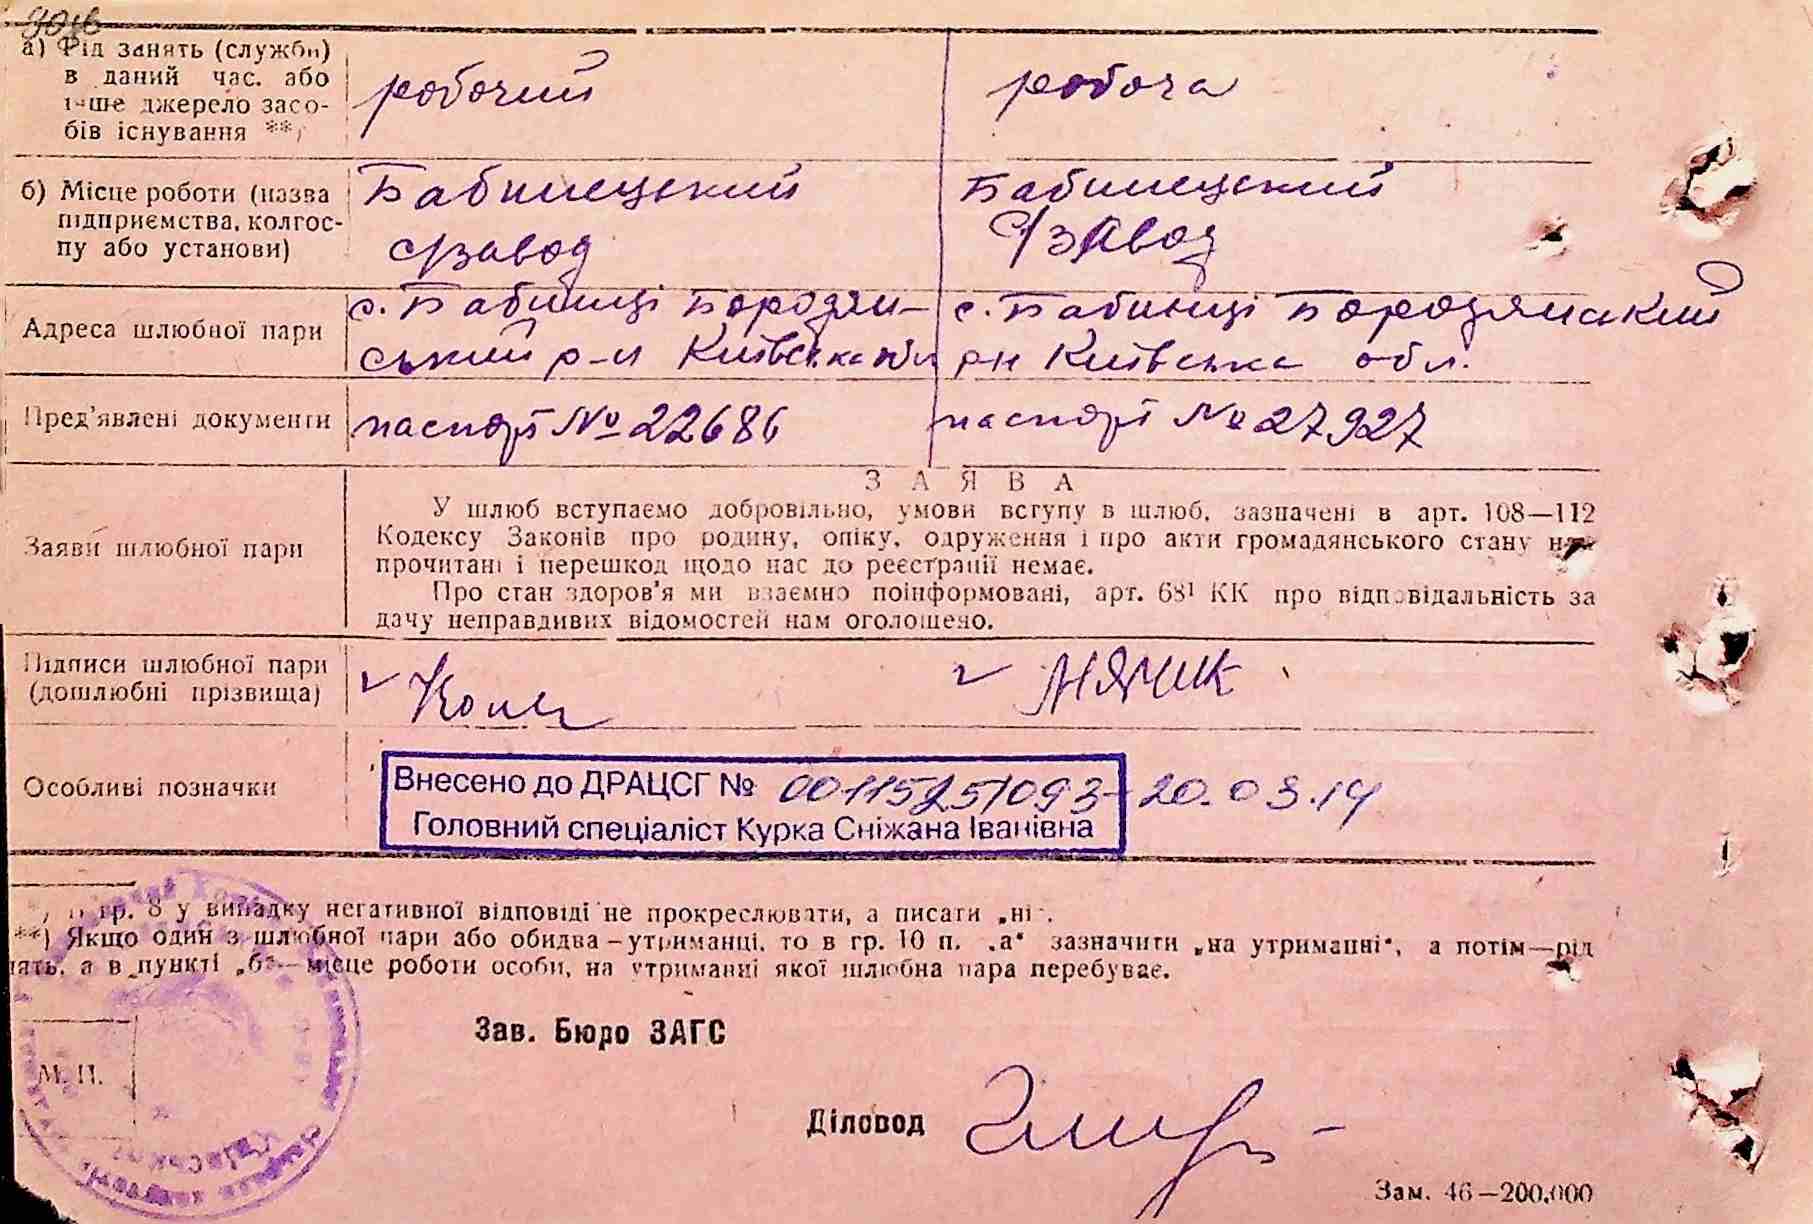 а) Рід занять (служби)
в даний час. або
інше джерело засо-
бів існування **)
робочий
робоча
б) Місце роботи (назва
підприємства, колгос-
пу або установи)
Бабинецький
завод
Бабинецький
завод
Адреса шлюбної пари
с. Бабинці Бородян-
ський р-н Київська обл
с. Бабинці Бородянский
рн Київська обл.
Пред'явлені документи
паспорт № 22686
паспорт № 27927
Заяви шлюбної пари
ЗАЯВА
У шлюб вступаємо добровільно, умови вступу в шлюб, зазначені в арт. 108—112
Кодексу Законів про родину, опіку, одруження і про акти громадянського стану нам
прочитані і перешкод щодо нас до реєстрації немає.
Про стан здоров'я ми взаємно поінформовані, арт. 68¹ КК про відповідальність за
дачу неправдивих відомостей нам оголошено.
Підписи шлюбної пари
(дошлюбні прізвища)
Особливі позначки
Внесено до ДРАЦСГ № 00115251093 - 20.03.14
Головний спеціаліст Курка Сніжана Іванівна
гр. 8 у випадку негативної відповіді не прокреслювати, а писати „ні".
**) Якщо один з шлюбної пари або обидва—утриманці, то в гр. 10 п. „а" зазначити „на утриманні", а потім—рід
нять, а в пункті „б"—місце роботи особи, на утриманні якої шлюбна пара перебуває.
Зав. Бюро ЗАГС
М. П.
Діловод
Зам. 46—200.000